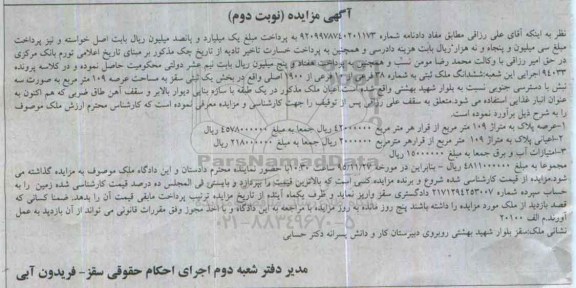 آگهی مزایده (نوبت دوم)
نظر به اینکه آقای علی رزاقی مطابق مفاد دادنامه شماره ۹۲۰۹۹۷۸۷۴۰۲۰۱۱۷۳ به پرداخت مبلغ یک میلیارد و پانصد میلیون ریال بابت اصل خواسته و نیز پرداخت
مبلغ سی میلیون و پنجاه و نه هزار ریال بابت هزینه دادرسی و همچنین به پرداخت خسارت تاخیر تادیه از تاریخ چک مذکور بر مبنای تاریخ اعلامی تورم بانک مرکزی
در حق امیر رزاقی با وکالت محمد رضا مومن نسب و همچنین پرداخت هفتاد و پنج میلیون ریال بابت نیم عشر دولتی محکومیت حاصل نموده و در کلاسه پرونده
۹۴۰۳۳ اجرایی این شعبه:ششدانگ ملک ثبتی به شماره ۳۸ فرعی از فرعی از ۱۹۰۰ اصلی واقع در بخش یک ثبتی سقز به مساحت عرصه ۱۰۹ متر مربع به صورت سه
نبش با دسترسی جنوبی نسبت به بلوار شهید بهشتی واقع شده است.اعیان ملک مذکور در یک طبقه با سازه بنایی دیوار بالابر و سقف آهن طاق ضربی که هم اکنون به
عنوان انبار غذایی استفاده می شود.متعلق به سقف علی رزاقی پس از توقیف را جهت کارشناسی و مزایده معرفی نموده است که کارشناس محترم ارزش ملک موصوف
را به شرح ذیل برآورد نموده است.
۱-عرصه پلاک به متراژ ۱۰۹ متر مربع از قرار هر متر مربع ۴۲۰۰۰۰۰۰ ریال جمعا به مبلغ ۴۵۷۸۰۰۰۰۰۰ ریال
۲-اعیانی پلاک به متراژ ۱۰۹ متر مربع از قرار هر مترمربع ۲۰۰۰۰۰۰ ریال جمعا به مبلغ ۲۱۸۰۰۰۰۰۰ ریال
۳-امتیازات آب و برق جمعا به مبلغ ۱۵۰۰۰۰۰۰ ریال
مجموعا به مبلغ ۴۸۱۱۰۰۰۰۰۰ ریال - بنابراین در مورخه ۹۴/۱۱/۱۷ ساعت ۱۰:۳۰ با حضور نماینده محترم دادستان و این دادگاه ملک موصوف به مزایده گذاشته می
شود.مزایده از قیمت کارشناسی شده شروع و برنده مزایده کسی است که بالاترین قیمت را بپردازد و بایستی فی المجلس ده درصد قیمت کارشناسی شده زمین را به
حساب سپرده شماره ۲۱۷۱۲۹۴۱۵۳۰۰۷ دادگستری سقز واریز نماید و ظرف یکماه آینده از تاریخ مزایده ترتیب پرداخت مابقی قیمت آن را بدهد. ضمنا کسانی که
قصد بازدید از ملک مورد مزایده را داشته باشند پنج روز مانده به روز مزایده با مراجعه به این دادگاه و با اخذ مجوز وفق مقررات قانونی می تواند از آن بازدید به عمل
آورند. الف ۲۰۱۰۰
نشانی ملک:سقز بلوار شهید بهشتی روبروی دبیرستان کار و دانش پسرانه دکتر حسابی
مدیر دفتر شعبه دوم اجرای احکام حقوقی سقز- فریدون آیی
ParsNamadData
۰۲۱-۸۸۳۴۹۶۷۰-۵